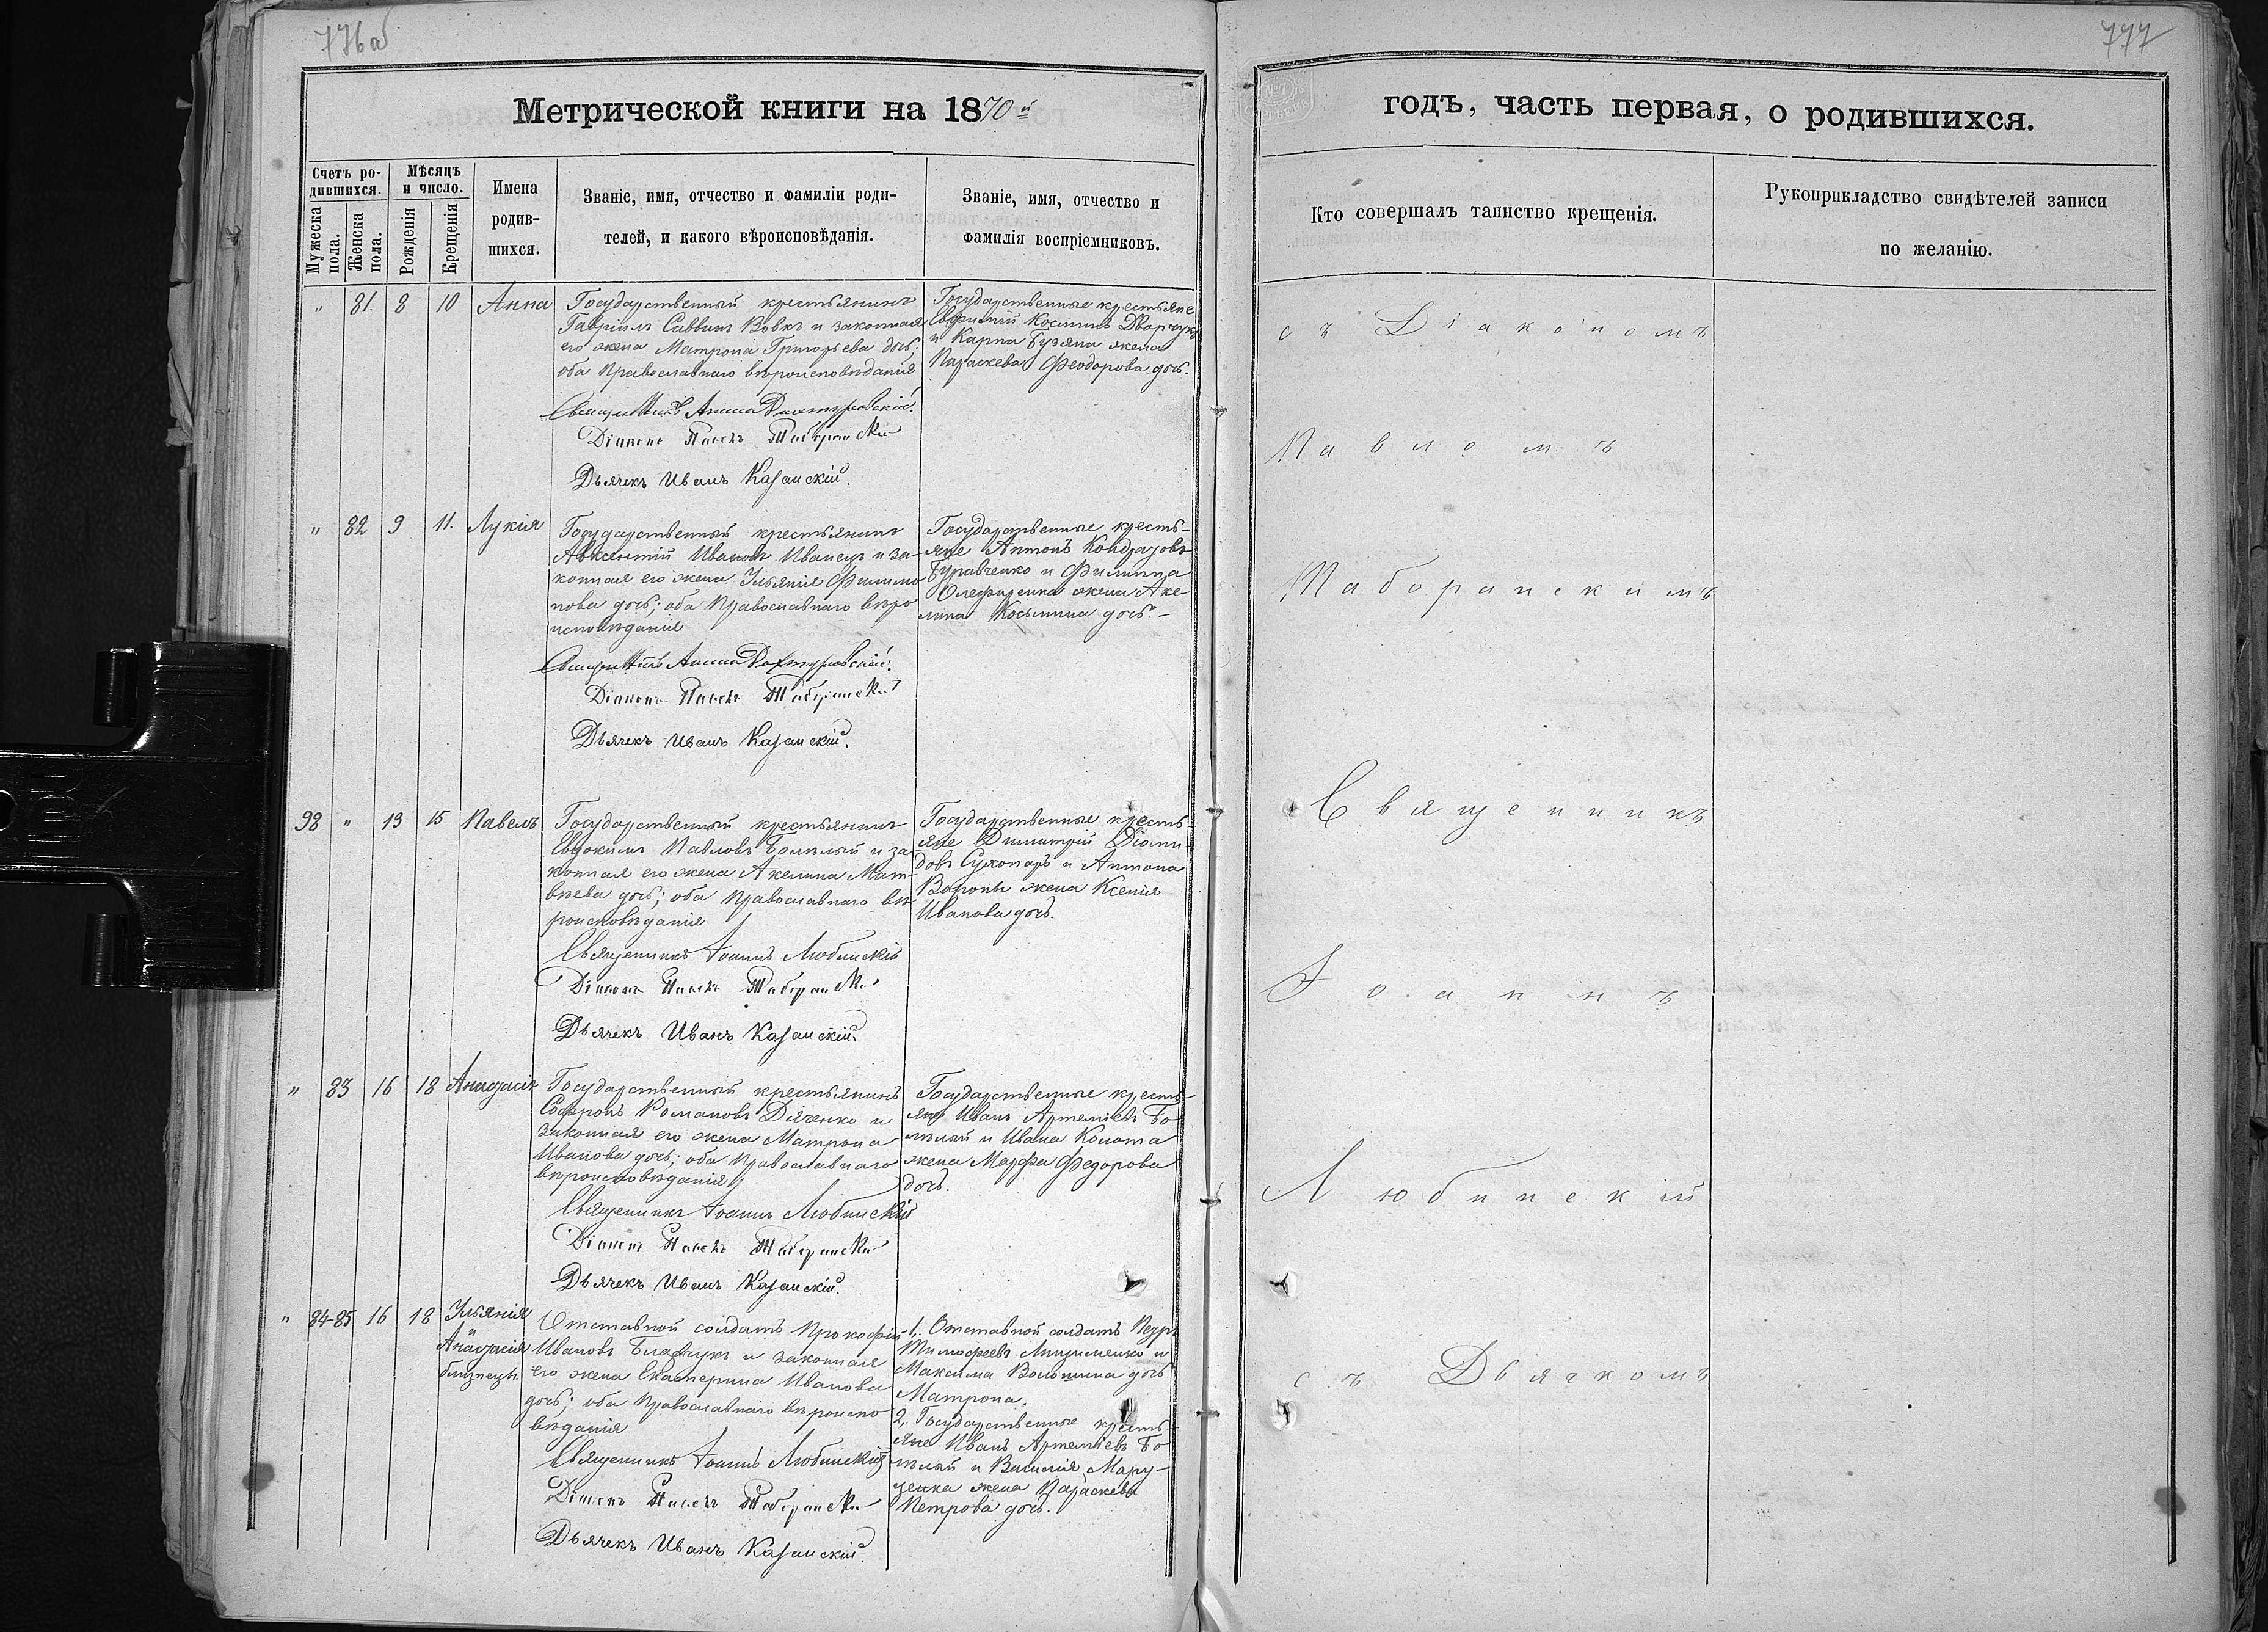 776об
777
Метрической книги на 1870й
годъ, часть первая, о родившихся.
Счетъ ро-
дившихся.
Мужеска
пола.
Женска
пола.
Мѣсяцъ
и число.
Рожденія
Крещенія
Имена
родив-
шихся.
Званіе, имя, отчество и фамиліи роди-
телей, и какого вѣроисповѣданія.
Званіе, имя, отчество и
фамилія воспріемниковъ.
Кто совершалъ таинство крещенія.
Рукоприкладство свидѣтелей записи
по желанію.
" 81. 8 10 Анна
Государственный крестьянинъ
Гавріилъ Саввинъ Вовкъ и законная
его жена Матрона Григорьева дочь;
оба Православнаго вѣроисповѣданія
Діаконъ Павелъ
Дьячекъ Иванъ Казанскій.
Государственные крестьяне
Евфимій Косминъ Дворчукъ
и Карпа Бузяна жена
Параскева Феодорова дочь.
" 82 9 11. Лукія
Государственный крестьянинъ
Авксентій Ивановъ Иванецъ и за-
конная его жена Ульянія Филимо
нова дочь; оба Православнаго вѣро
исповѣданія
Діаконъ Павелъ
Дьячекъ Иванъ Казанскій.
Государственные кресть-
яне Антонъ Кондратовъ
Буравченко и Филиппа
Олефиренка жена Аке-
лина Косьмина дочь. -
98 " 13 15 Павелъ
Государственный крестьянинъ
Евдокимъ Павловъ и за
конная его жена Акелина Мат
вѣева дочь; оба Православнаго вѣ
роисповѣданія
Священникъ Іоаннъ Любинскій
Діаконъ Павелъ
Дьячекъ Иванъ Казанскій.
Государственные кресть
яне Димитрій Діоми-
довъ Сухопаръ и Антона
Вороны жена Ксенія
Иванова дочь.
" 83 16 18 Анастасія
Государственный крестьянинъ
Софронъ Романовъ Дяченко и
законная его жена Матрона
Иванова дочь; оба Православнаго
вѣроисповѣданія
Священникъ Іоаннъ Любинскій
Діаконъ Павелъ
Дьячекъ Иванъ Казанскій.
Государственные кресть-
яне Иванъ Артеміевъ
и Ивана Колота
жена Марфа Федорова
дочь.
" 84-85 16 18 Ульянія
Анастасія
близнецы
Отставной солдатъ Прокофій
Ивановъ и законная
его жена Екатерина Иванова
дочь; оба Православнаго вѣроиспо
вѣданія
Священникъ Іоаннъ Любинскій
Діаконъ Павелъ
Дьячекъ Иванъ Казанскій.
1,. Отставной солдатъ Петръ
Тимофеевъ и
Максима Волошина дочь
Матрона.
2,. Государственные кресть-
яне Иванъ Артеміевъ
и Василія Мару-
ченка жена Параскева
Петрова дочь.
съ Діакономъ
Павломъ
Таборанскимъ
Священникъ
Іоаннъ
Любинскій
съ Дьячкомъ